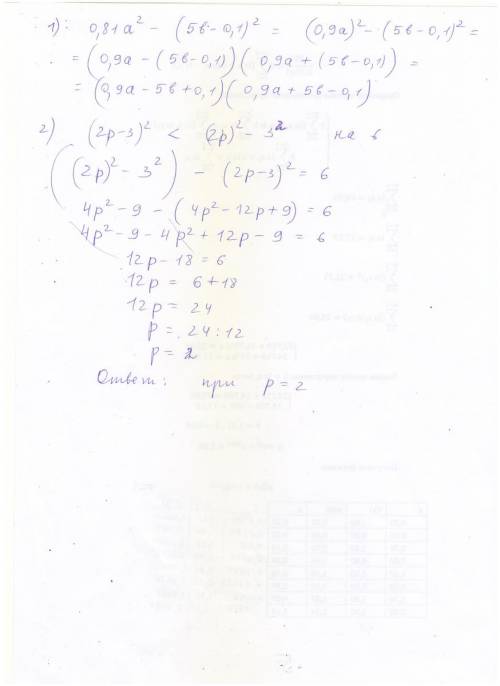 1): 0,81a² - (5в-0,1)² = (0,9a)² - (5в-0,1)² =
= (0,9a - (5в-0,1)) (0,9a + (5в-0,1)) =
= (0,9a - 5в + 0,1) (0,9a + 5в - 0,1)
2) (2p-3)² < (2p)² - 3² на 6
((2p)² - 3²) - (2p-3)² = 6
4p² - 9 - (4p² - 12p + 9) = 6
4p² - 9 - 4p² + 12p - 9 = 6
12p - 18 = 6
12p = 6 + 18
12p = 24
p = 24 : 12
p = 2
Ответ: при p = 2